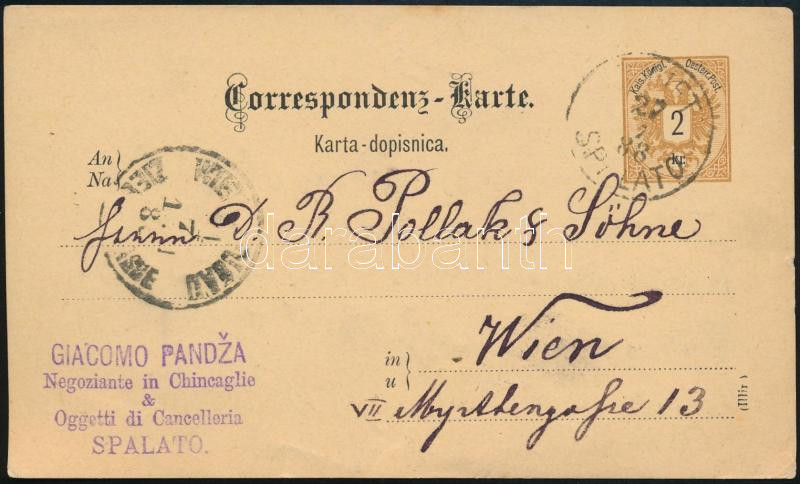 Kais. Königl. Oesterr. Post.
2
kr.
SPALATO
27
88
Correspondenz-Karte.
Karta-dopisnica.
An
Na
WIEN
Herrn D. B. Pollak & Söhne
darabanth
in
u
Wien
VII Myrthengasse 13
(Illir.)
GIACOMO PANDŽA
Negoziante in Chincaglie
&
Oggetti di Cancelleria
SPALATO.